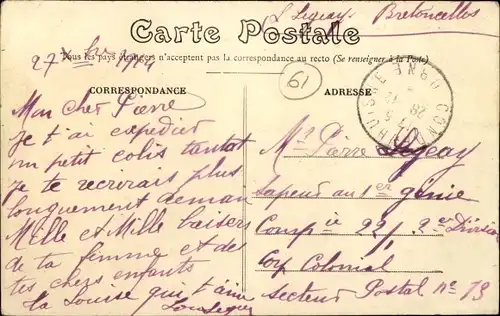 L Legeay Bretoncelles
Carte Postale
Tous les pays étrangers n'acceptent pas la correspondance au recto (Se renseigner à la Poste)
27 Xbre 1914
61
CORRESPONDANCE
ADRESSE
Mon cher Pierre
Je t'ai expédier
un petit colis tantot
je te recrirais plus
longuement demain
Mille et Mille baisers
de ta femme et des
tes chers enfants
ta Louise qui t'aime
Mr Pierre Legeay
Sapeur au 1er génie
Comp ie 22/1 2e Division
Corp Colonial
Secteur Postal no 13
ORNE